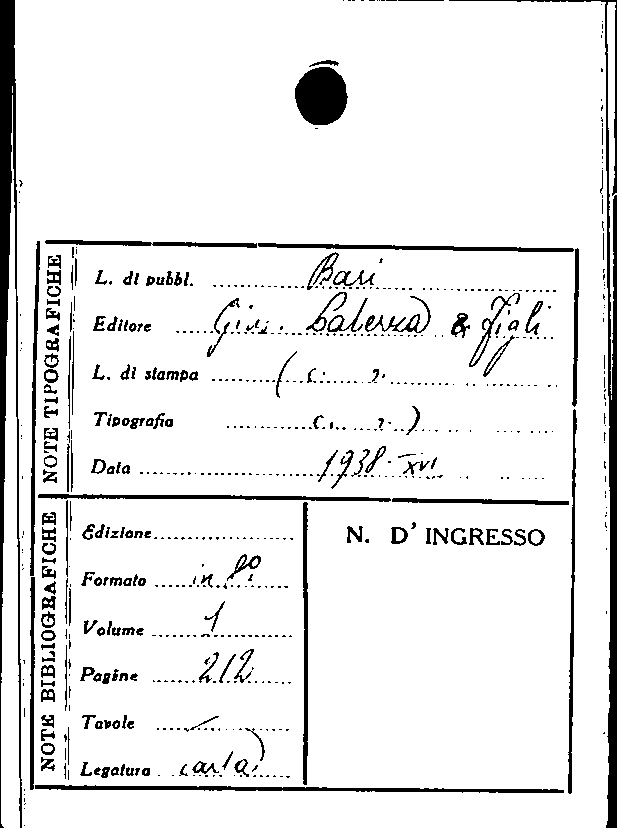 NOTE TIPOGRAFICHE
L. di pubbl. Bari
Editore Gius. Laterza & Figli
L. di stampa ( c. s.
Tipografia c. s. )
Data 1938-XVI
NOTE BIBLIOGRAFICHE
Edizione
Formato in 8º
Volume 1
Pagine 212
Tavole /
Legatura carta
N. D' INGRESSO